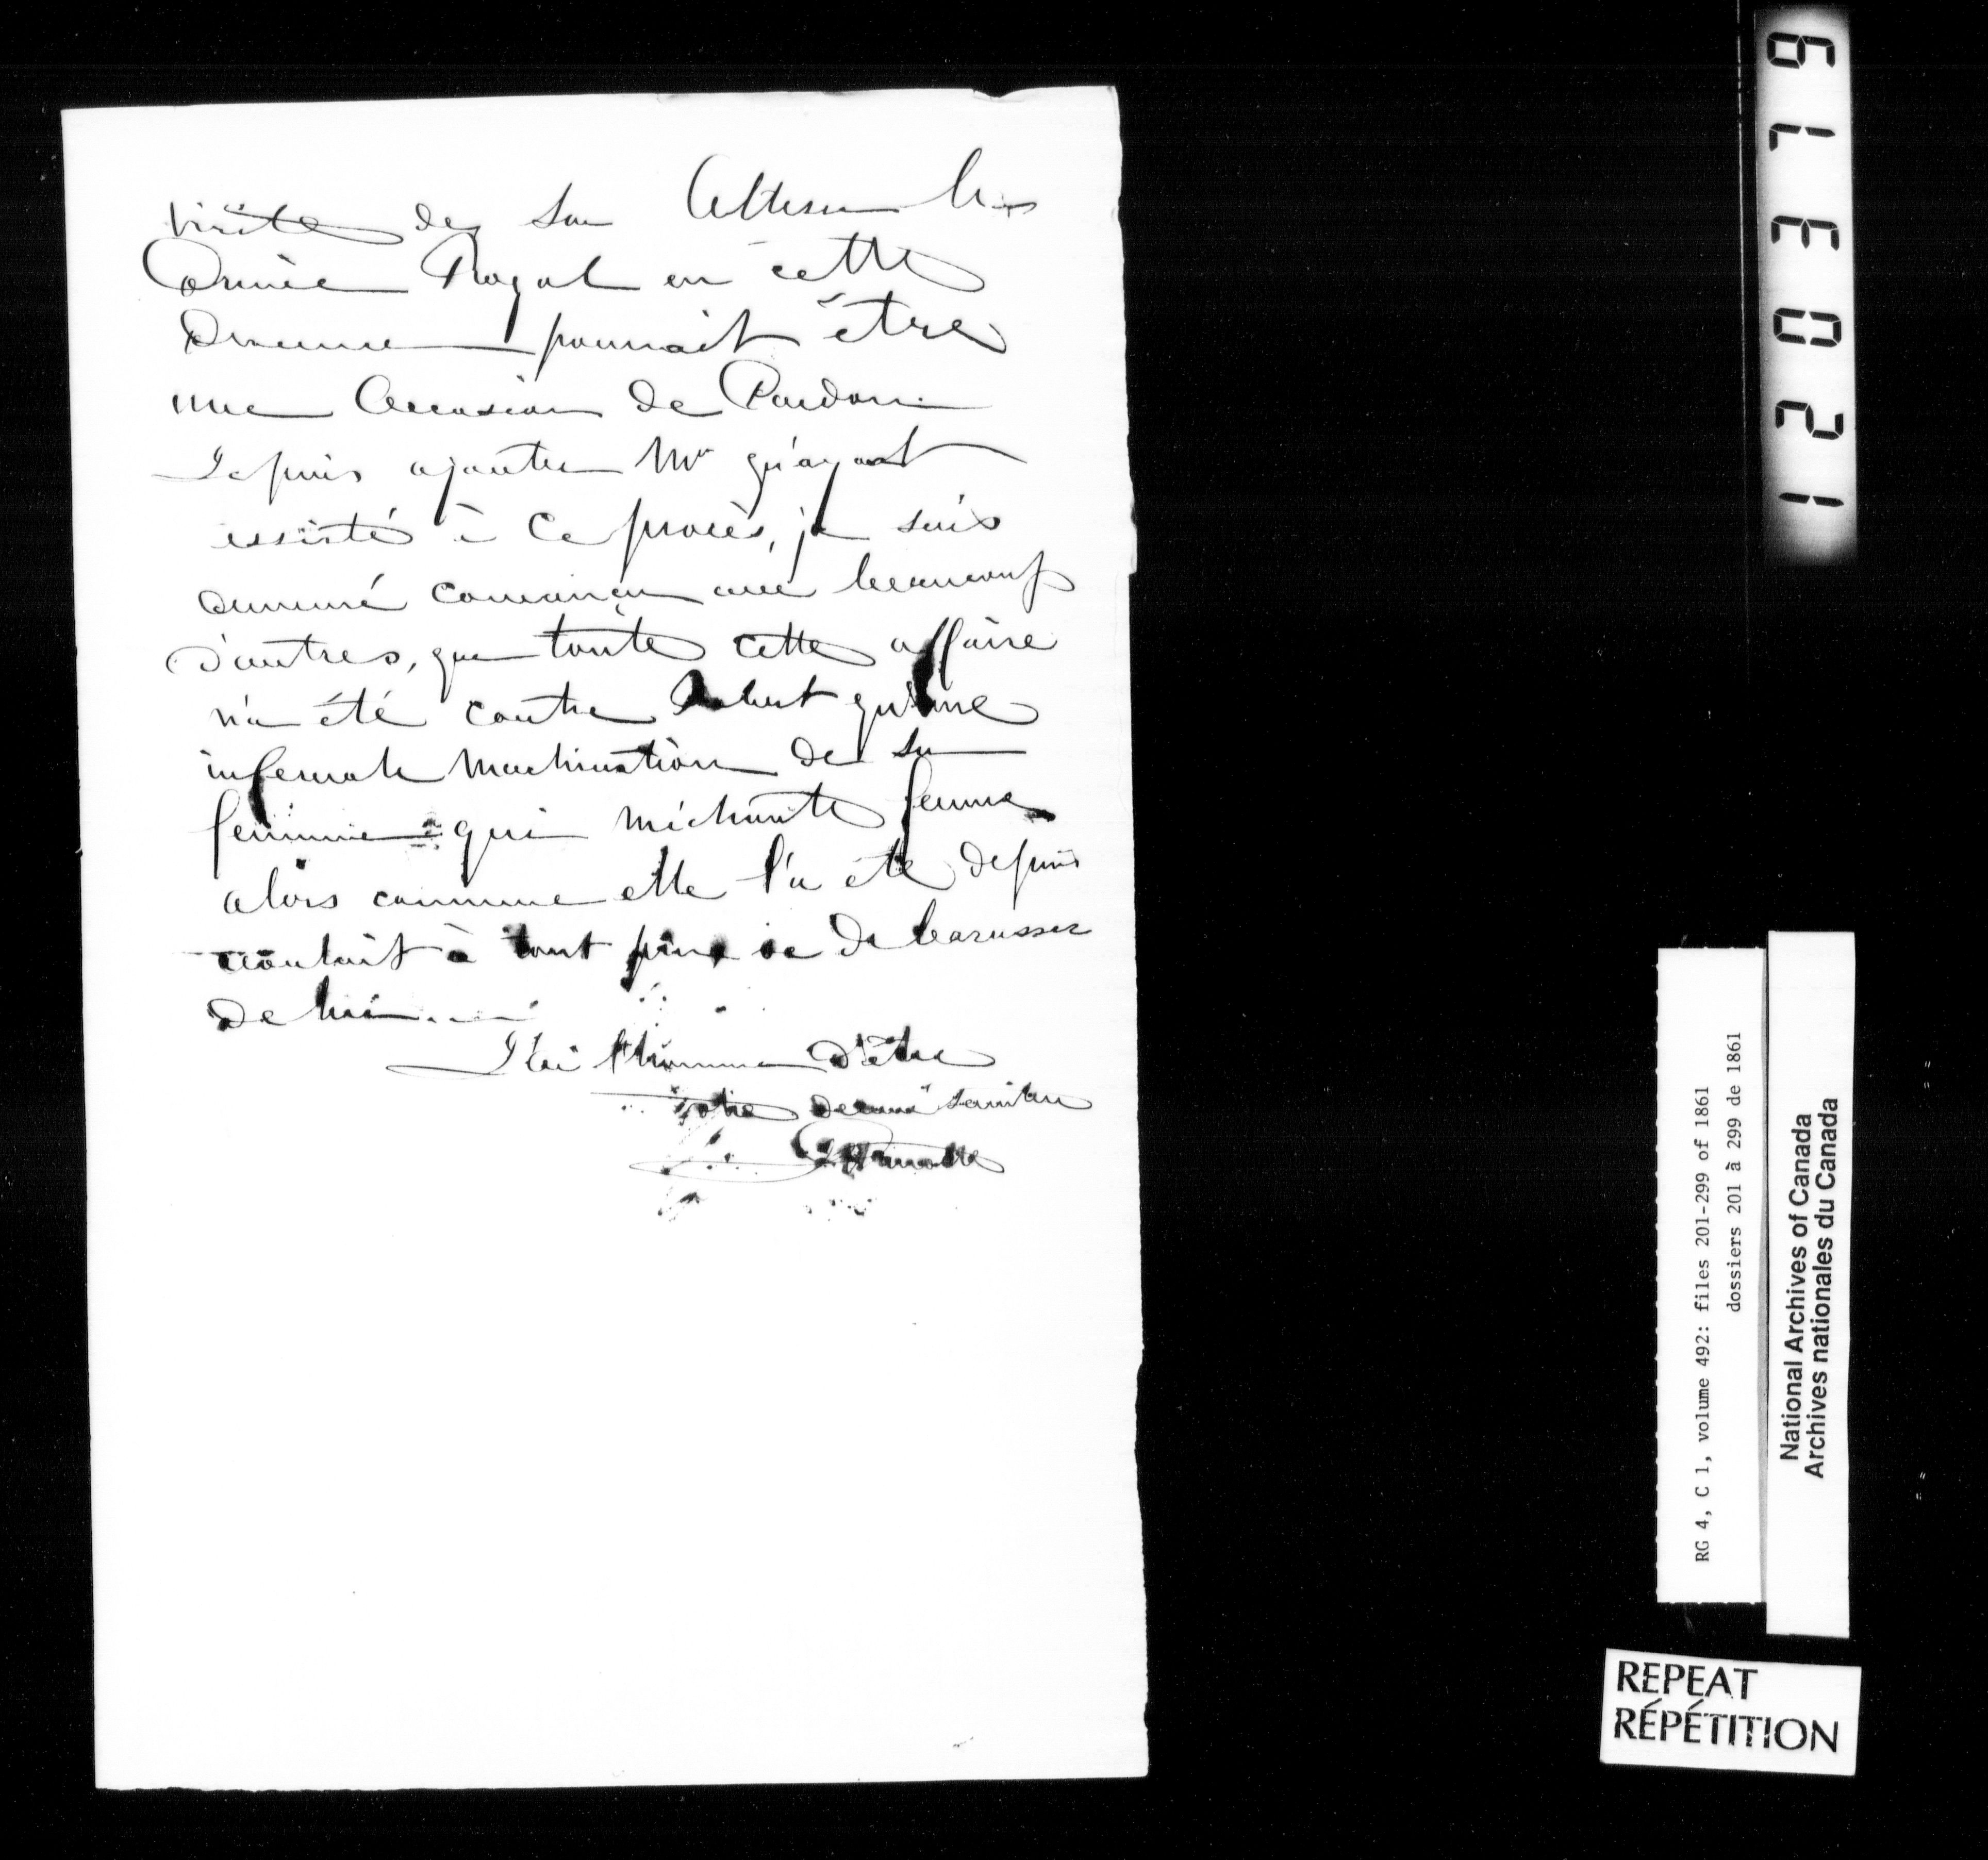 visite de Son Altesse le
Prince Royal en cette
Province pourrait être
une Occasion de Pardon.
Je puis ajouter Mr qu'ayant
assisté à ce procès, je suis
demeuré convaincu avec beaucoup
d'autres, que toute cette affaire
n'a été contre Robert qu'une
infernale machination de sa
femme qui méchante femme
alors comme elle l'a été depuis
voulait à tout prix se debarasser
de lui.
J'ai l'honneur d'être
Votre devoué serviteur
RG 4, C 1, volume 492: files 201-299 of 1861
dossiers 201 à 299 de 1861
National Archives of Canada
Archives nationales du Canada
REPEAT
RÉPÉTITION